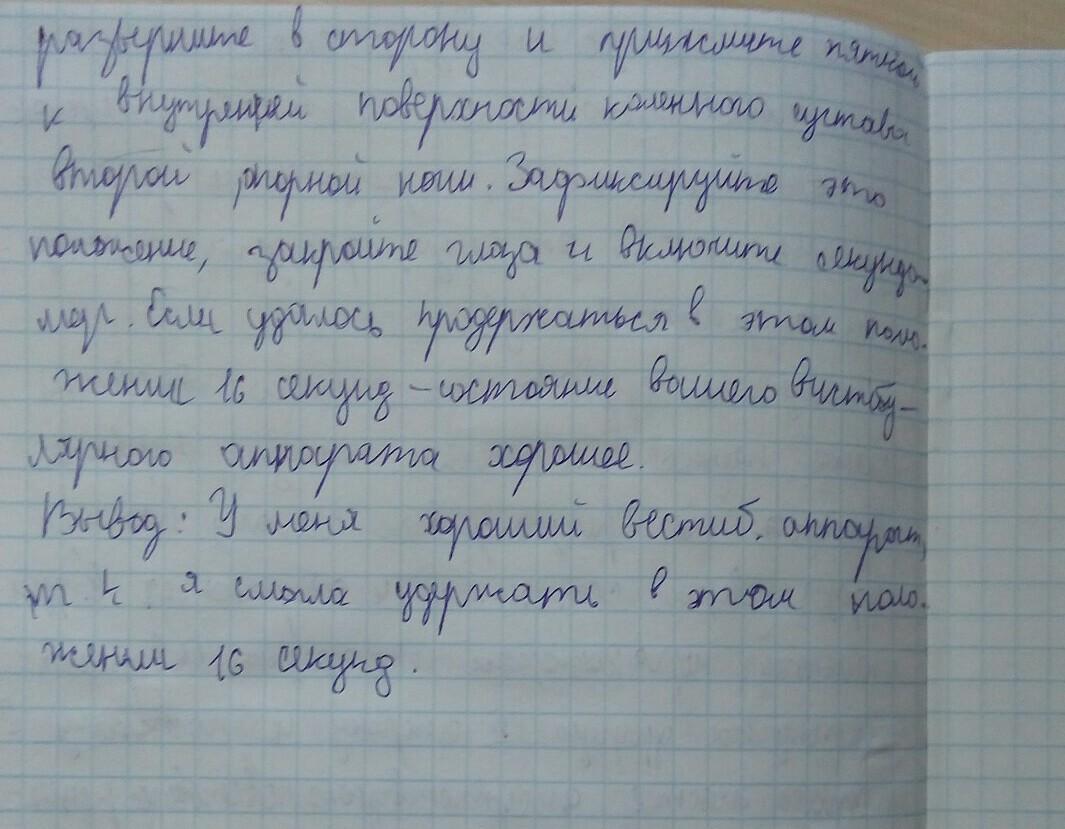 разверните в сторону и прижмите пяткой
к внутренней поверхности коленного сустава
второй опорной ноги. Зафиксируйте это
положение, закройте глаза и включите секундо-
мер. Если удалось продержаться в этом поло-
жении 16 секунд – состояние вашего вистбу-
лярного аппарата хорошее.
Вывод: У меня хороший вестиб. аппарат,
т. к. я смогла удержать в этом поло-
жении 16 секунд.